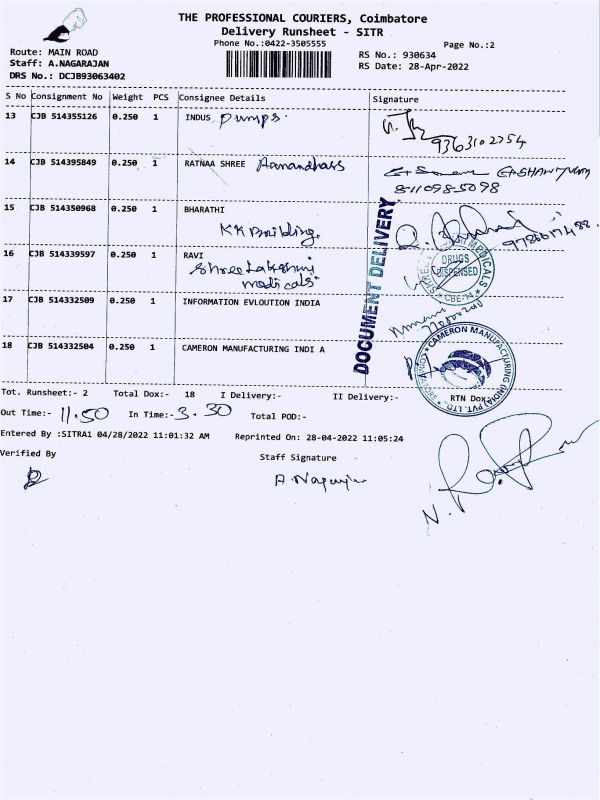 THE PROFESSIONAL COURIERS, Coimbatore
Delivery Runsheet - SITR
Phone No.:0422-3505555
Page No.:2
Route: MAIN ROAD
Staff: A.NAGARAJAN
DRS No.: DCJB93063402
RS No.: 930634
RS Date: 28-Apr-2022
S No Consignment No Weight PCS Consignee Details Signature
13 CJB 514355126 0.250 1 INDUS Pumps.
9363102254
14 CJB 514395849 0.250 1 RATNAA SHREE
8110985098
15 CJB 514350968 0.250 1 BHARATHI
KK Building.
16 CJB 514339597 0.250 1 RAVI
Shree Lakshmi
medicals
DRUGS
DISPENSED
CBE-14
17 CJB 514332509 0.250 1 INFORMATION EVLOUTION INDIA
DOCUMENT DELIVERY
18 CJB 514332504 0.250 1 CAMERON MANUFACTURING INDI A
CAMERON MANUFACTURING (INDIA) PVT. LTD.
Tot. Runsheet:- 2 Total Dox:- 18 I Delivery:- II Delivery:- RTN Dox:-
Out Time:- 11.50 In Time:- 3.30 Total POD:-
Entered By :SITRA1 04/28/2022 11:01:32 AM Reprinted On: 28-04-2022 11:05:24
Verified By Staff Signature